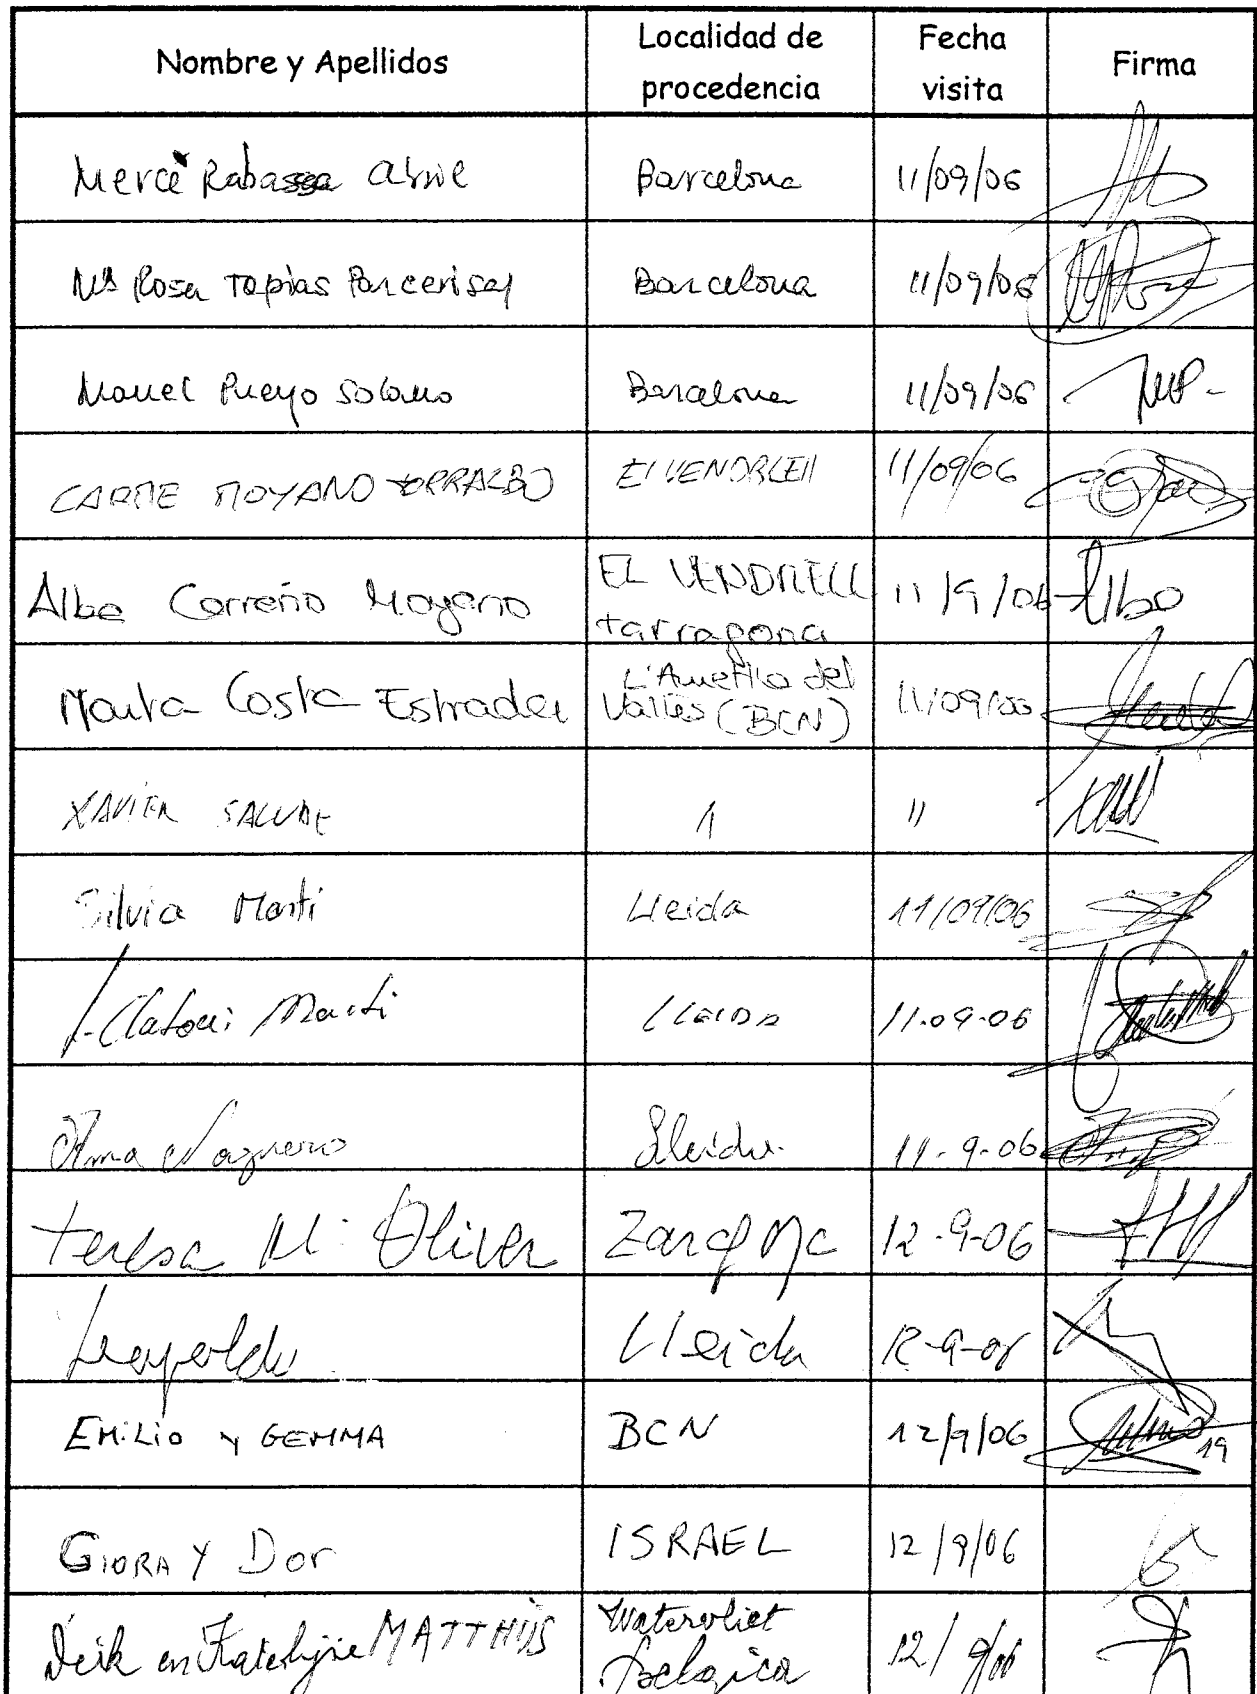 Nombre y Apellidos
Localidad de
procedencia
Fecha
visita
Firma
Mercè Rabassa
Barcelona
11/09/06
Mª Rosa Tapias Parcerisas
Barcelona
11/09/06
Manuel Pueyo Solano
Barcelona
11/09/06
CARME MOYANO TORRALBO
El VENDRELL
11/09/06
Alba Correño Moyano
EL VENDRELL
tarragona
11/9/06
Alba
Marta Costa Estrader
L'Ametlla del
Vallès (BCN)
11/09/06
XAVIER
11
Silvia Martí
Lleida
11/09/06
Martí
LLEIDA
11.09.06
Lleida.
11-9-06
Teresa M. Oliver
Zaragoza
12-9-06
Leopoldo
Lleida
12-9-06
EMiLiO y GEMMA
BCN
12/9/06
19
GIORA Y Dor
ISRAEL
12/9/06
en Katelijne MATTHIJS
Watervliet
Belgica
12/9/06